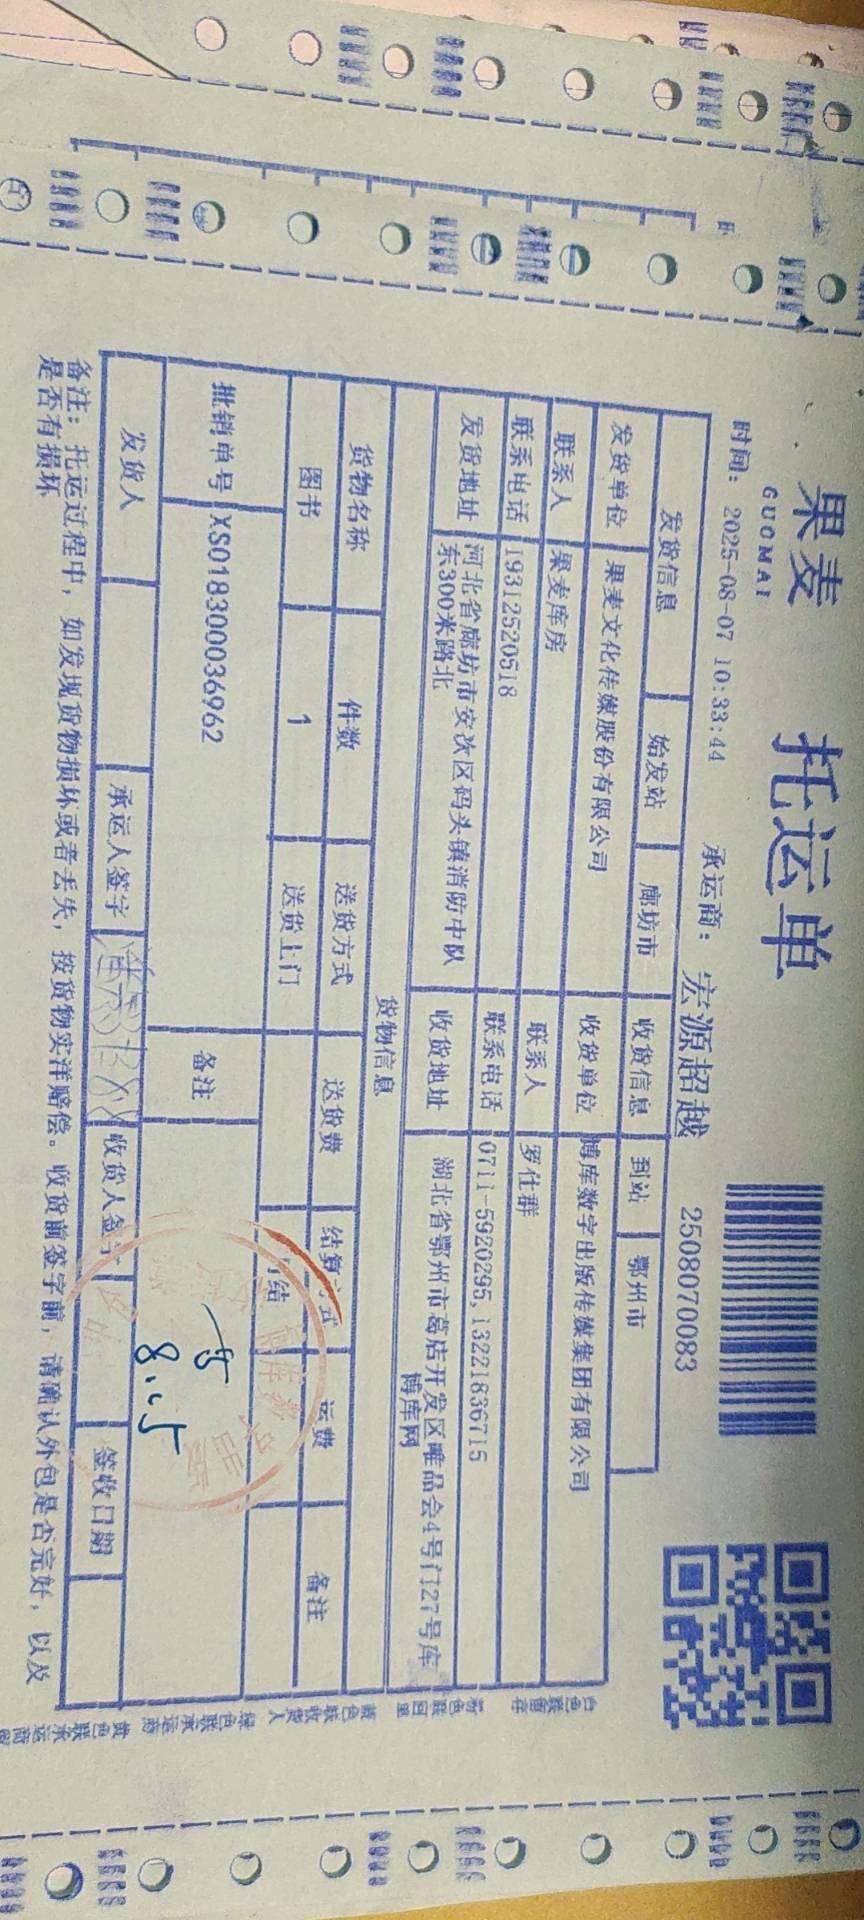 果麦
GUOMAI
托运单
时间: 2025-08-07 10:33:44 承运商: 宏源超越 2508070083
发货信息 始发站 廊坊市 收货信息 到站 鄂州市
发货单位 果麦文化传媒股份有限公司 收货单位 博库数字出版传媒集团有限公司
联系人 果麦库房 联系人 罗仕群
联系电话 19312520518 联系电话 0711-5920295,13221836715
发货地址 河北省廊坊市安次区码头镇消防中队东300米路北 收货地址 湖北省鄂州市葛店开发区唯品会4号门27号库博库网
货物信息
货物名称 件数 送货方式 送货费 结算方式 运费 备注
图书 1 送货上门 月结
批销单号 XS018300036962 备注
8.15
发货人 承运人签字 收货人签字 签收日期
备注: 托运过程中, 如发现货物损坏或者丢失, 按货物实洋赔偿。收货前签字前, 请确认外包是否完好, 以及
是否有损坏
白色联留存 粉色联回单 蓝色联收货人 绿色联承运商 黄色联承运商留